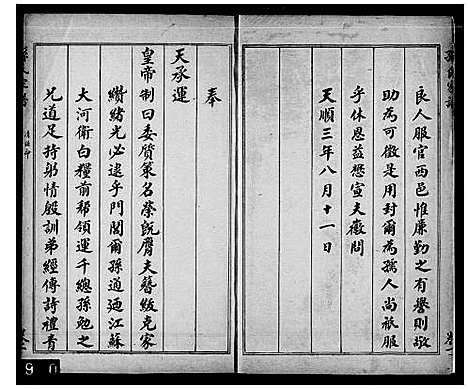 良人服官西邑惟廉勤之有譽則敬
助為可徵是用封爾為孺人尚祇服
乎休恩益懋宣夫徽問
天順三年八月十一日
奉
天承運
皇帝制曰委質策名榮既膺夫簪紱克家
纘緒光必逮乎門閭爾孫道廻江蘇
大河衛白糧前幫領運千總孫勉之
兄道足持躬情殷訓弟經傳詩禮青
9 0